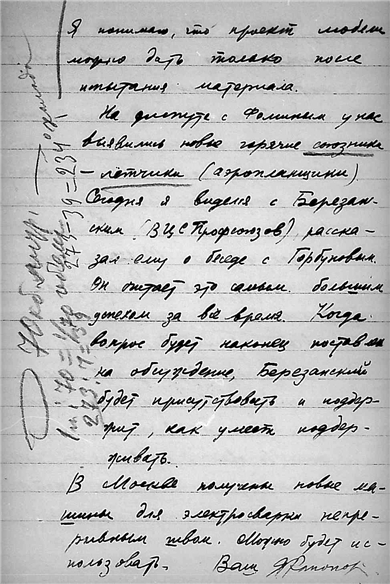 Я понимаю, что проект модели
можно дать только после
испытания материала.
На диспуте с Фоминым у нас
выявились новые горячие союзники
– летчики (аэропланщики)
Сегодня я виделся с Березан-
ским (ВЦСПрофсоюзов) расска-
зал ему о беседе с Горбуновым.
Он считает это самым большим
успехом за всё время. Когда
вопрос будет наконец поставлен
на обсуждение, Березанский
будет присутствовать и поддер-
жит, как умеет поддер-
живать.
В Москве получены новые ма-
шины для электросварки непре-
рывным швом. Можно будет ис-
пользовать. Ваш
273:7=39
273-39=234